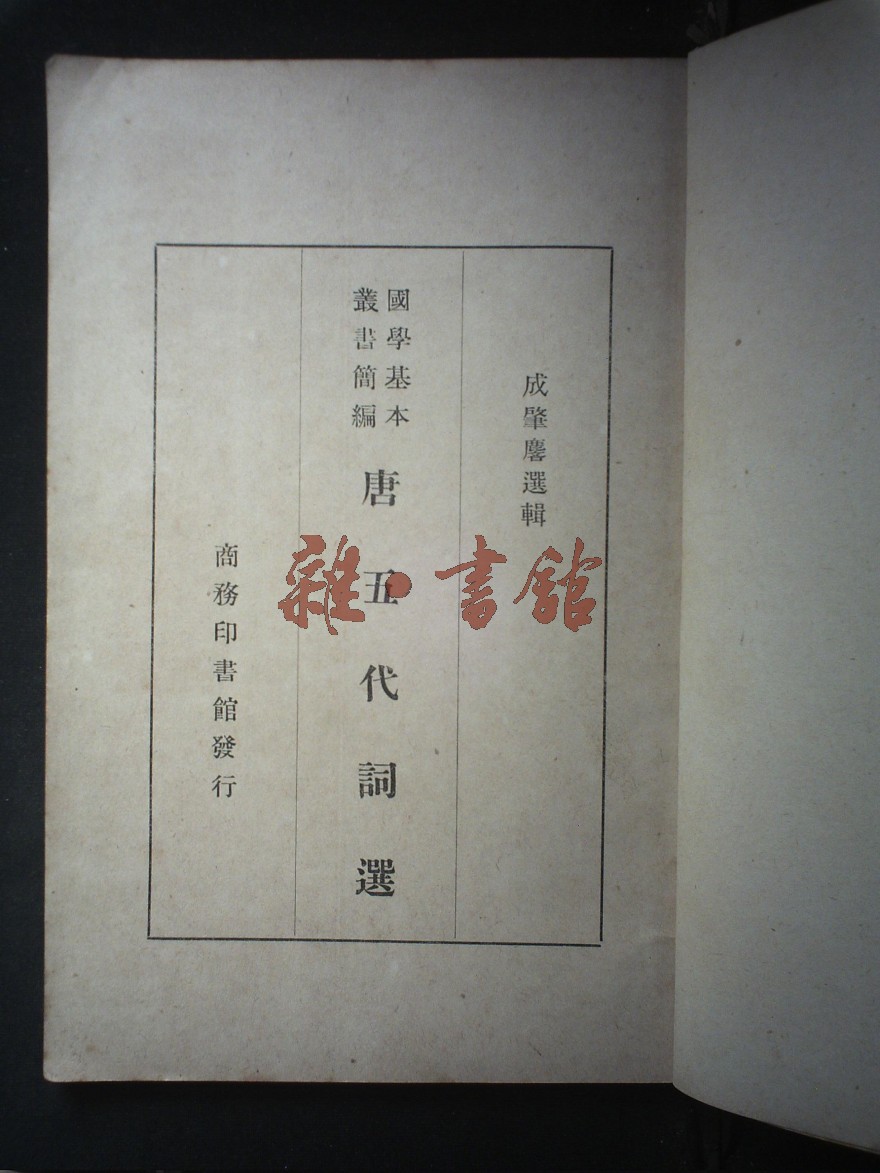 成肇麐選輯
國學基本
叢書簡編
唐五代詞選
商務印書館發行
雜·書館